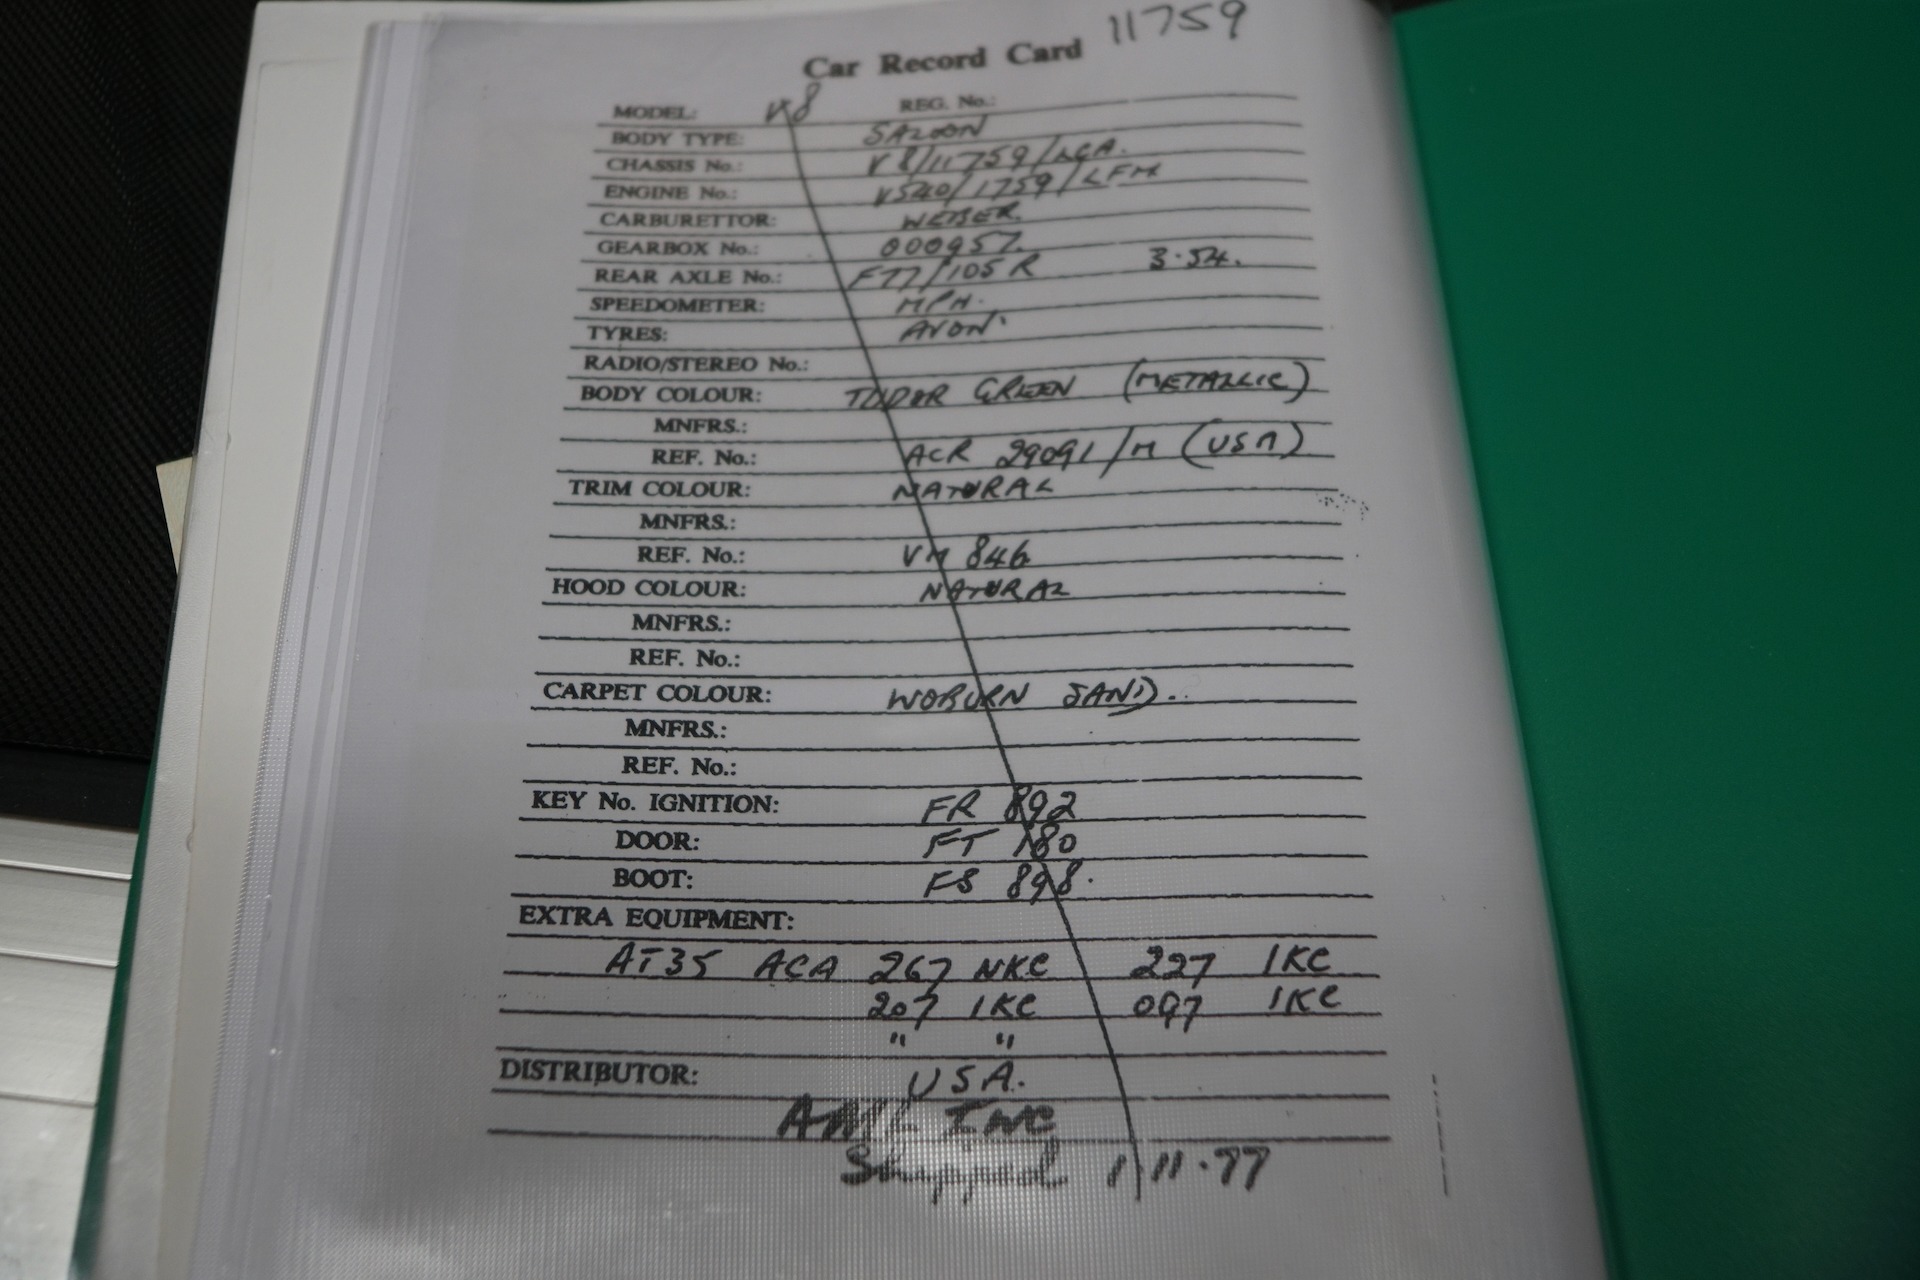 11759
Car Record Card
MODEL: V8 REG. No.:
BODY TYPE: SALOON
CHASSIS No.: V8/11759/LCA.
ENGINE No.: V540/1759/LFM
CARBURETTOR: WEBER
GEARBOX No.: 000957
REAR AXLE No.: FT7/105R 3.54.
SPEEDOMETER: MPH.
TYRES: AVON
RADIO/STEREO No.:
BODY COLOUR: TUDOR GREEN (METALLIC)
MNFRS.:
REF. No.: ACR 29091/M (USA)
TRIM COLOUR: NATURAL
MNFRS.:
REF. No.: VM 846
HOOD COLOUR: NATURAL
MNFRS.:
REF. No.:
CARPET COLOUR: WOBURN SAND.
MNFRS.:
REF. No.:
KEY No. IGNITION: FR 892
DOOR: FT 180
BOOT: FS 898.
EXTRA EQUIPMENT:
AT35 ACA 267 NKC 227 IKC
207 IKC 097 IKC
" "
DISTRIBUTOR: USA.
AML INC
Shipped 1.11.77